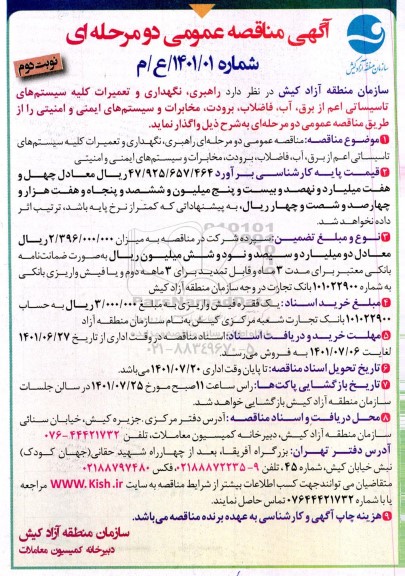 آگهی مناقصه عمومی دو مرحله ای
شماره ۱۴۰۱/۰۱/ع/م
نوبت دوم
سازمان منطقه آزاد کیش
سازمان منطقه آزاد کیش در نظر دارد راهبری، نگهداری و تعمیرات کلیه سیستم‌های
تاسیساتی اعم از برق، آب، فاضلاب، برودت، مخابرات و سیستم‌های ایمنی و امنیتی را از
طریق مناقصه عمومی دو مرحله‌ای به شرح ذیل واگذار نماید.
۱ موضوع مناقصه: مناقصه عمومی دو مرحله‌ای راهبری، نگهداری و تعمیرات کلیه سیستم‌های
تاسیساتی اعم از برق، آب، فاضلاب، برودت، مخابرات و سیستم‌های ایمنی و امنیتی
۲ قیمت پایه کارشناسی برآورد ۴۷/۹۲۵/۶۵۷/۴۶۴ ریال معادل چهل و
هفت میلیارد و نهصد و بیست و پنج میلیون و ششصد و پنجاه و هفت هزار و
چهارصد و شصت و چهار ریال، به پیشنهاداتی که کمتر از نرخ پایه باشد، ترتیب اثر
داده نخواهد شد.
۳ نوع و مبلغ تضمین: سپرده شرکت در مناقصه به میزان ۲/۳۹۶/۰۰۰/۰۰۰ ریال
معادل دو میلیارد و سیصد و نود و شش میلیون ریال به‌صورت ضمانت‌نامه
بانکی معتبر برای مدت ۳ ماه و قابل تمدید برای ۳ ماهه دوم و یا فیش واریزی بانکی
به شماره ۱۰۱۰۲۲۹۰۰ بانک تجارت در وجه سازمان منطقه آزاد کیش
۴ مبلغ خرید اسناد: یک فقره فیش واریزی به مبلغ ۳/۰۰۰/۰۰۰ ریال به حساب
۱۰۱۰۲۲۹۰۰ بانک تجارت شعبه مرکزی کیش به نام سازمان منطقه آزاد
۵ مهلت خرید و دریافت اسناد: اسناد مناقصه در وقت اداری از تاریخ ۱۴۰۱/۰۶/۲۷
لغایت ۱۴۰۱/۰۷/۰۶ به فروش می‌رسد.
۶ تاریخ تحویل اسناد مناقصه: تا پایان وقت اداری ۱۴۰۱/۰۷/۲۰ می‌باشد.
۷ تاریخ بازگشایی پاکت‌ها: راس ساعت ۱۱ صبح مورخ ۱۴۰۱/۰۷/۲۵ در سالن جلسات
سازمان منطقه آزاد کیش بازگشایی خواهد شد.
۸ محل دریافت و اسناد مناقصه: آدرس دفتر مرکزی: جزیره کیش، خیابان سنائی
سازمان منطقه آزاد کیش، دبیرخانه کمیسیون معاملات، تلفن ۴۴۴۲۱۷۳۲-۰۷۶
آدرس دفتر تهران: بزرگراه آفریقا، بعد از چهارراه شهید حقانی (جهان کودک)
نبش خیابان کیش، شماره ۴۵، تلفن ۹-۰۲۱۸۸۸۷۲۲۳۵، فکس ۰۲۱۸۸۷۹۷۴۸۰
متقاضیان می توانند جهت کسب اطلاعات بیشتر از شرایط مناقصه به سایت WWW.Kish.ir مراجعه
یا با شماره ۰۷۶۴۴۴۲۱۷۳۲ تماس حاصل نمایند.
۹ هزینه چاپ آگهی و کارشناسی به عهده برنده مناقصه می‌باشد.
سازمان منطقه آزاد کیش
دبیرخانه کمیسیون معاملات